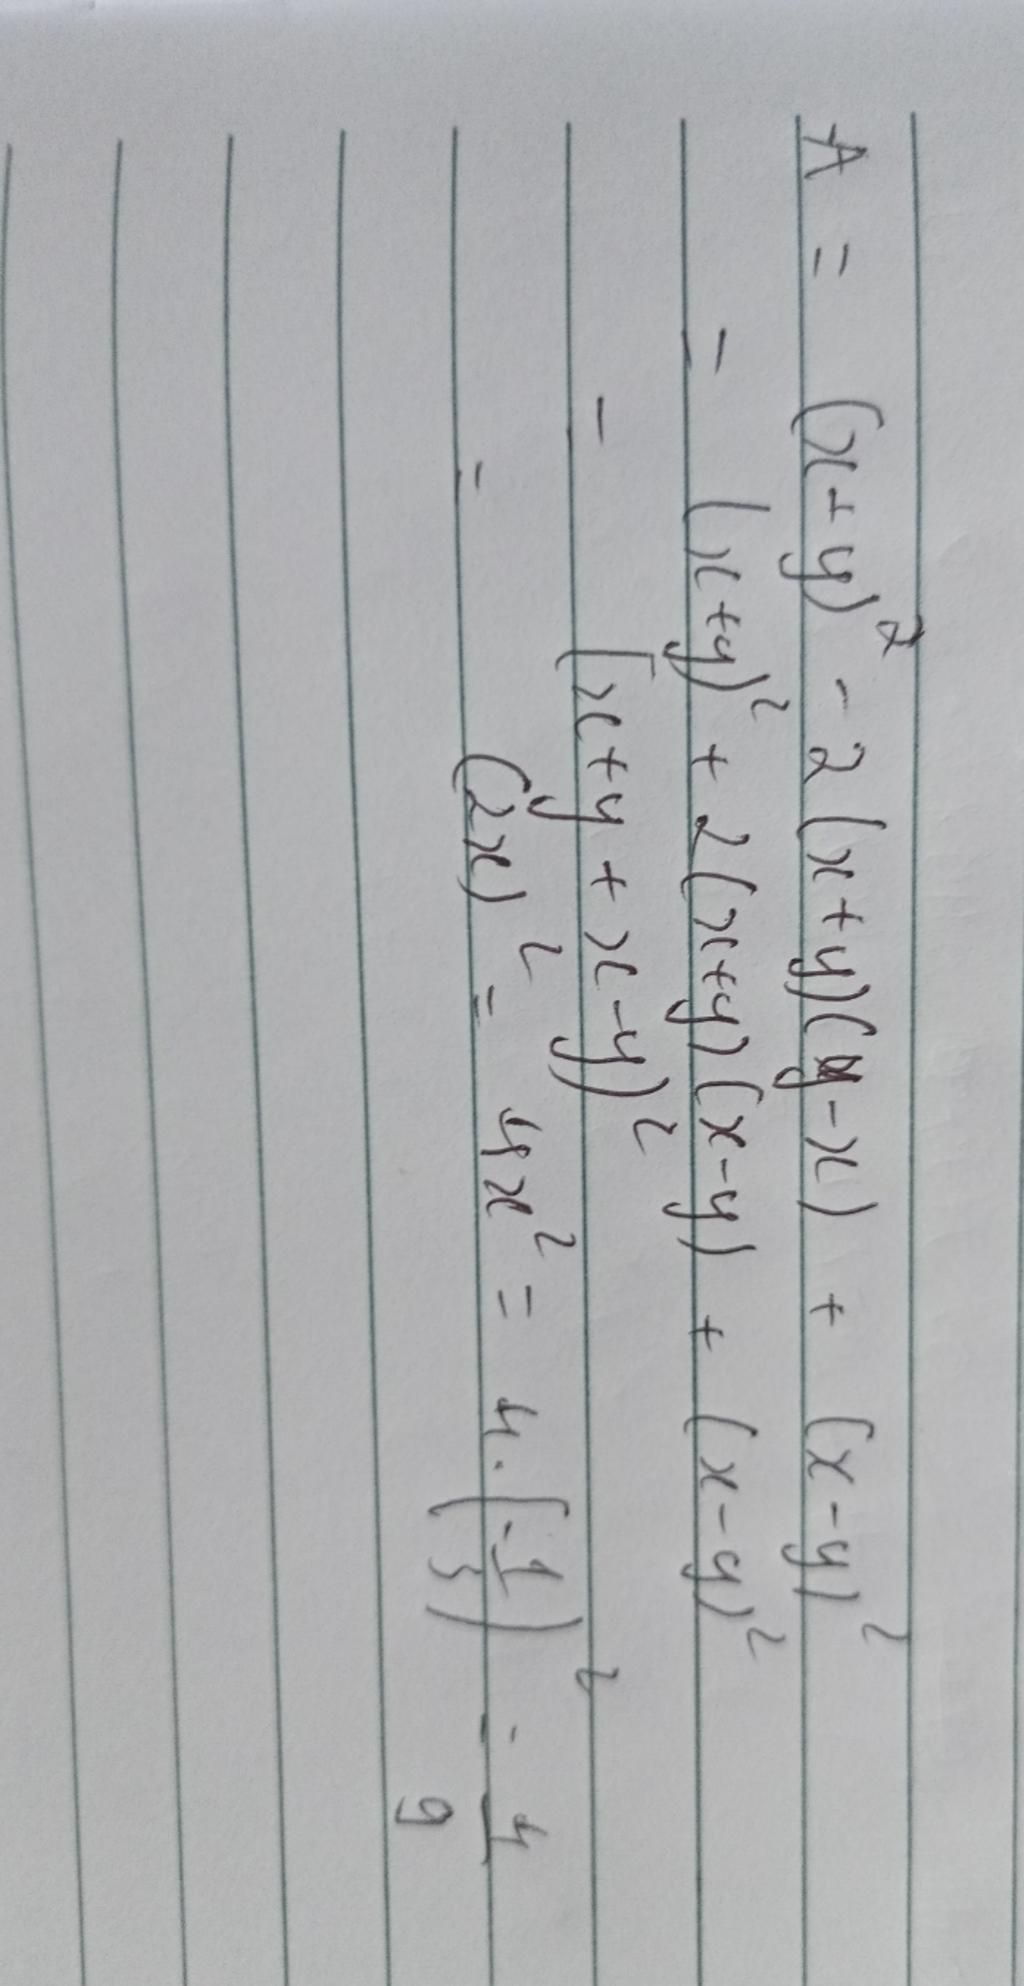 A = (x+y)² - 2(x+y)(y-x) + (x-y)²
= (x+y)² + 2(x+y)(x-y) + (x-y)²
= (x+y+x-y)²
= (2x)² = 4x² = 4.(-1/3)² = 4/9